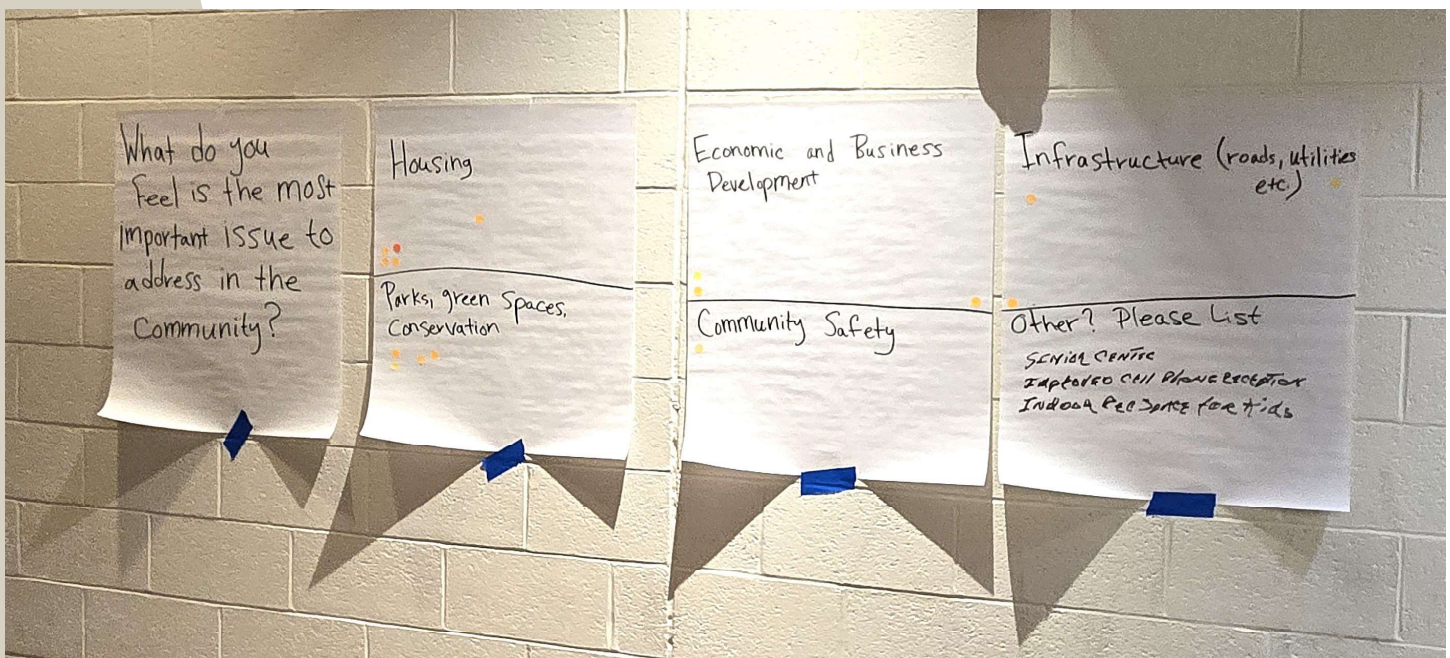 What do you
feel is the most
important issue to
address in the
Community?
Housing
Parks, green spaces,
Conservation
Economic and Business
Development
Community Safety
Infrastructure (roads, utilities
etc.)
Other? Please List
SENIOR CENTRE
IMPROVED CELL PHONE RECEPTION
INDOOR REC SPACE FOR KIDS